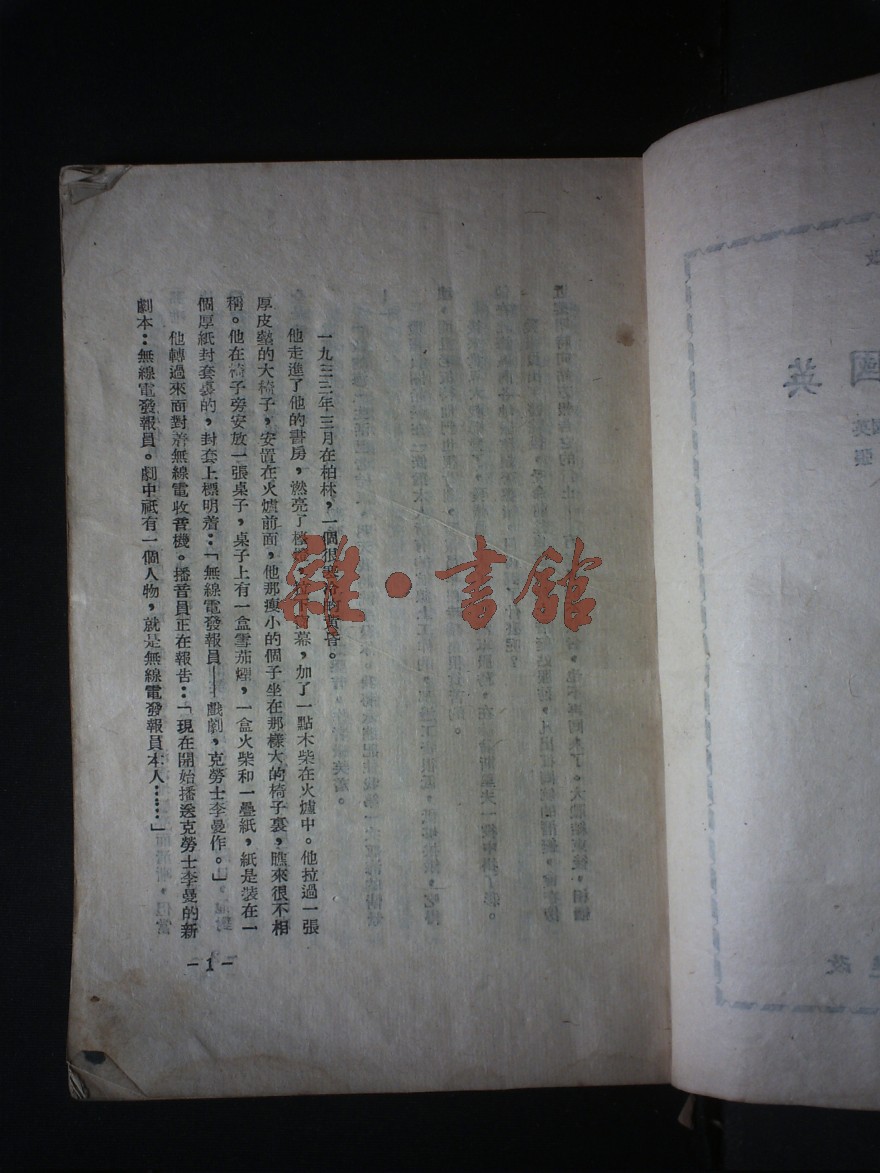 一九三三年三月在柏林，一個很寒冷的黃昏。
他走進了他的書房，燃亮了檯燈，拉下窗幕，加了一點木柴在火爐中。他拉過一張
厚皮墊的大椅子，安置在火爐前面，他那瘦小的個子坐在那樣大的椅子裏，瞧來很不相
稱。他在椅子旁安放一張桌子，桌子上有一盒雪茄煙，一盒火柴和一疊紙，紙是裝在一
個厚紙封套裏的，封套上標明着：「無線電發報員——戲劇，克勞士李曼作。」
他轉過來面對着無線電收音機。播音員正在報告：「現在開始播送克勞士李曼的新
劇本：無線電發報員。劇中祇有一個人物，就是無線電發報員本人……」
-1-
雜·書館
國英